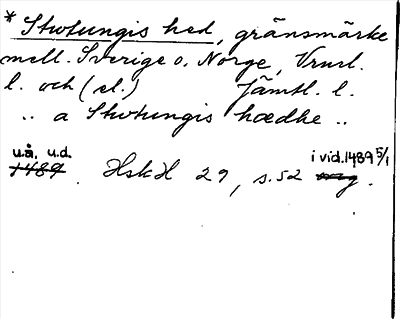 * Stwtungis hed, gränsmärke
mell. Sverige o. Norge, Vrml.
l. och (el.) Jämtl. l.
.. a Stwtungis hædhe ..
u.å. u.d. i vid. 1489 5/1
1489. HskH 29, s. 52